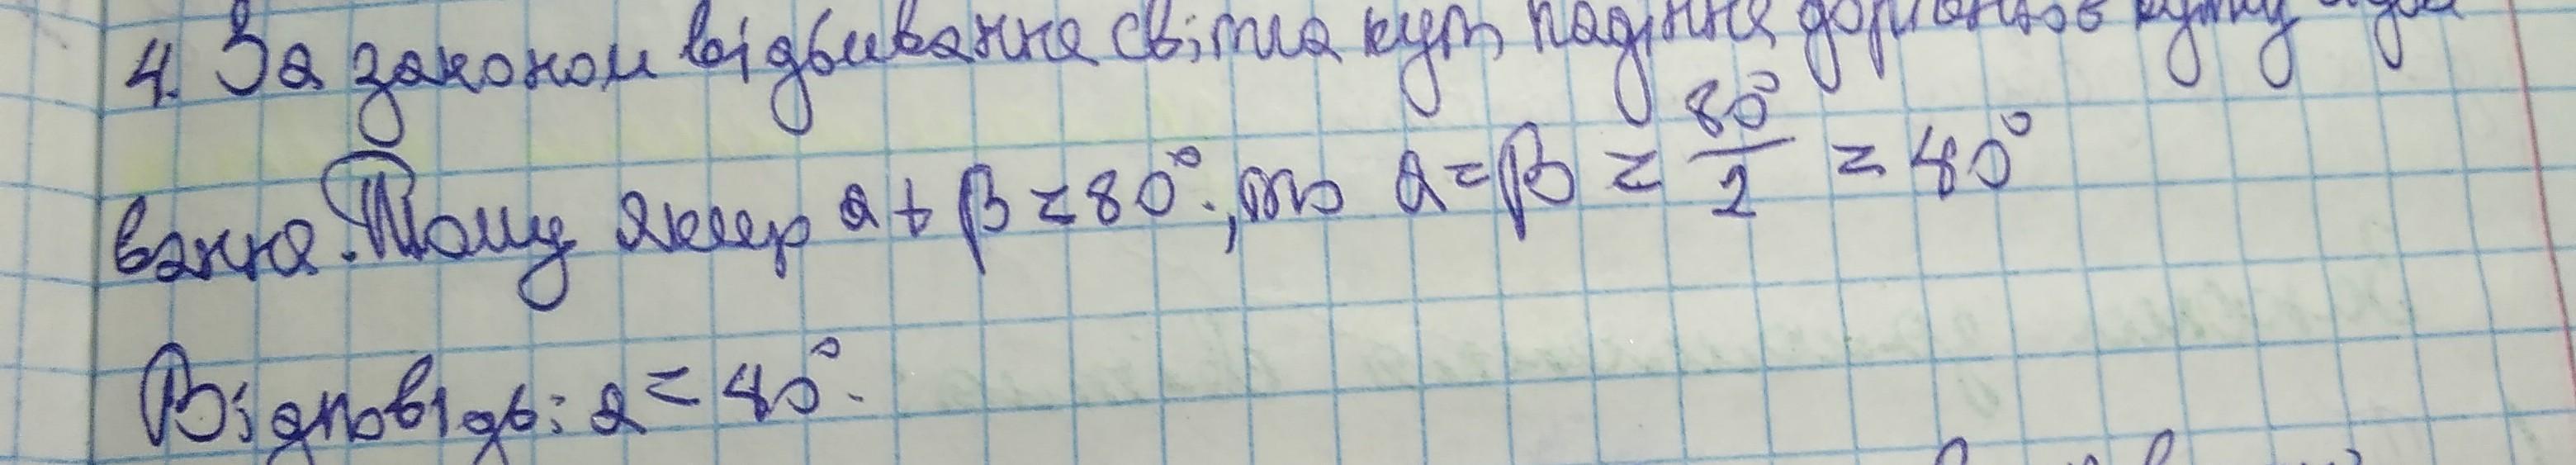 4. За законом відбивання світла кут падіння дорівнює куту відби
вання. Тому якщо α + β = 80°, то α = β = 80°/2 = 40°
Відповідь: α = 40°.